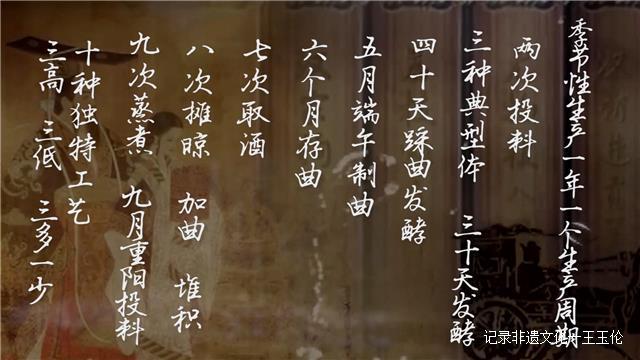 季节性生产一年一个生产周期
两次投料
三种典型体 三十天发酵
四十天踩曲发酵
五月端午制曲
六个月存曲
七次取酒
八次摊晾 加曲 堆积
九次蒸煮 九月重阳投料
十种独特工艺
三高 三低 三多一少
记录非遗文化-王玉伦